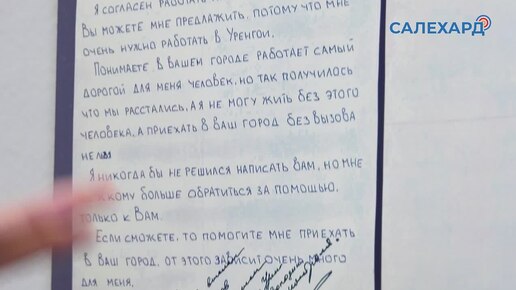 САЛЕХАРД
Я СОГЛАСЕН РАБОТАТЬ
ВЫ МОЖЕТЕ МНЕ ПРЕДЛАЖИТЬ, ПОТОМУ ЧТО МНЕ
ОЧЕНЬ НУЖНО РАБОТАТЬ В УРЕНГОИ.
ПОНИМАЕТЕ В ВАШЕМ ГОРОДЕ РАБОТАЕТ САМЫЙ
ДОРОГОЙ ДЛЯ МЕНЯ ЧЕЛОВЕК, НО ТАК ПОЛУЧИЛОСЬ
ЧТО МЫ РАССТАЛИСЬ, А Я НЕ МОГУ ЖИТЬ БЕЗ ЭТОГО
ЧЕЛОВЕКА, А ПРИЕХАТЬ В ВАШ ГОРОД БЕЗ ВЫЗОВА
НЕЛЬЗЯ
Я НИКОГДА БЫ НЕ РЕШИЛСЯ НАПИСАТЬ ВАМ, НО МНЕ
КОМУ БОЛЬШЕ ОБРАТИТЬСЯ ЗА ПОМОЩЬЮ,
ТОЛЬКО К ВАМ.
ЕСЛИ СМОЖЕТЕ, ТО ПОМОГИТЕ МНЕ ПРИЕХАТЬ
В ВАШ ГОРОД, ОТ ЭТОГО ЗАВИСИТ ОЧЕНЬ МНОГО
ДЛЯ МЕНЯ.